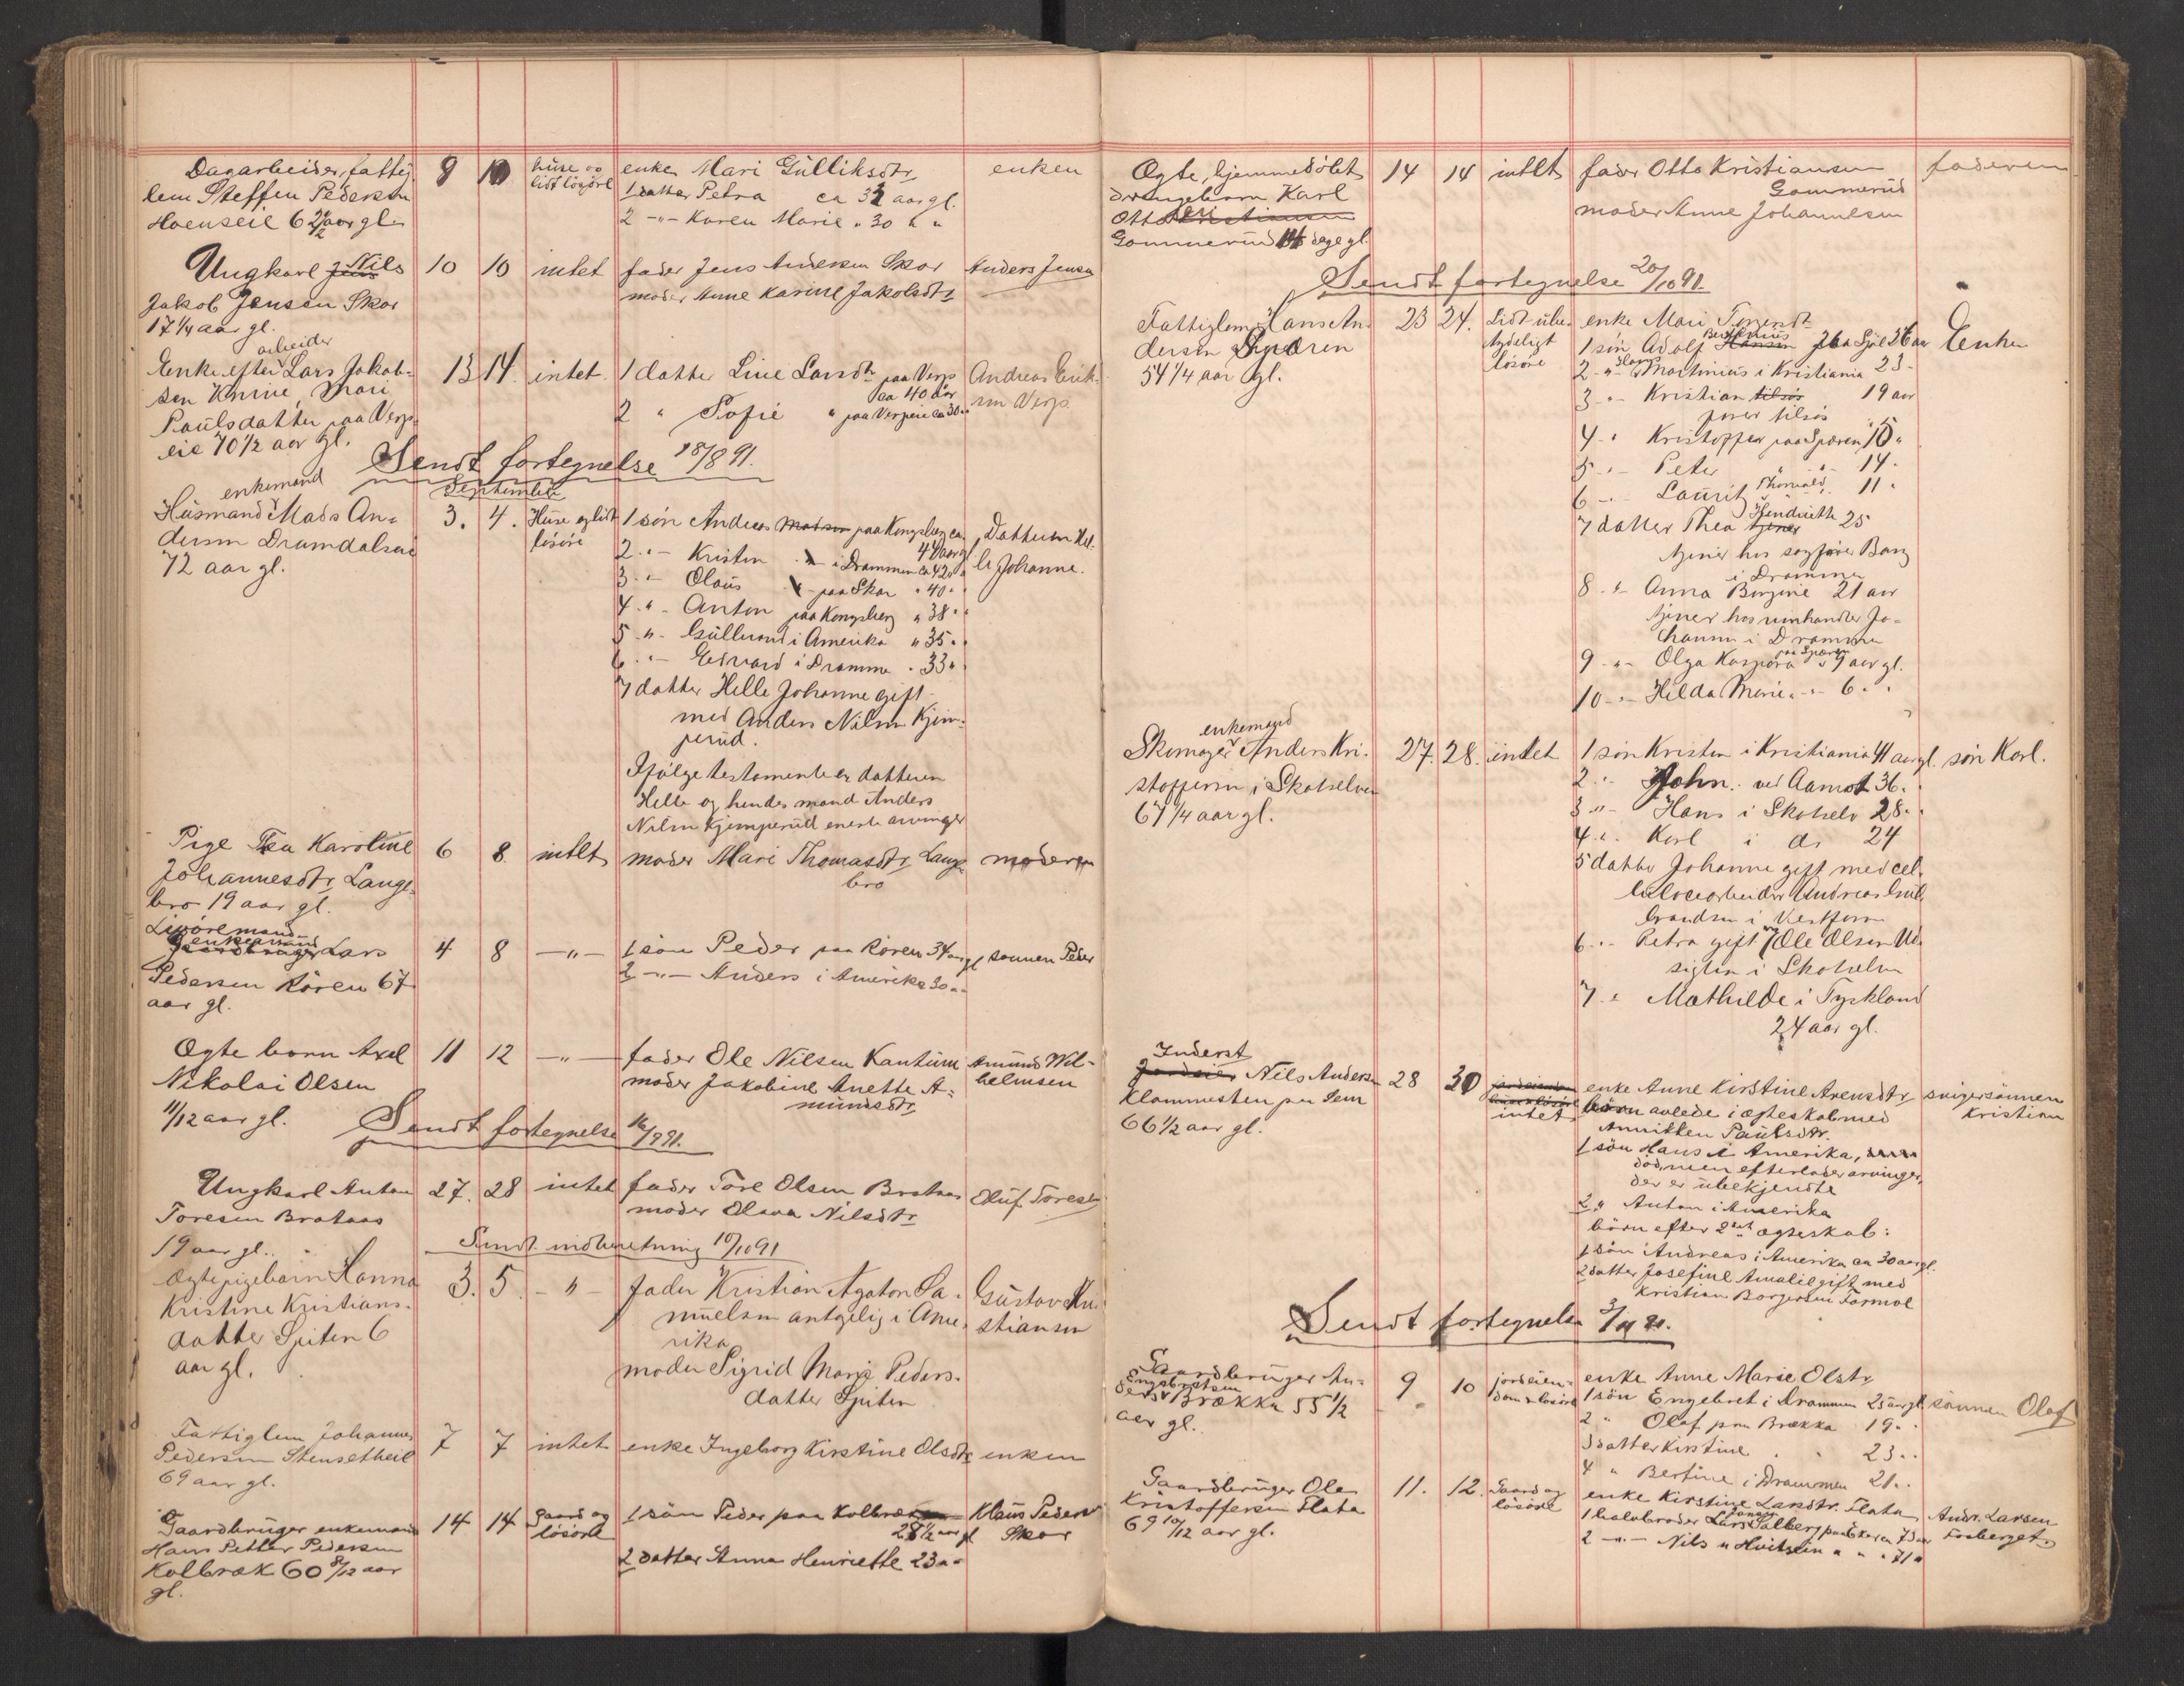 Dagarbeider, fattig- 9 10 huse og enke Mari Gulliksdtr enken
lem Steffen Pedersen lidt løsøre 1 datter Petra ca 32 aar gl.
Hoenseie 62 1/2 aar gl. 2 -"- Karen Marie " 30 " "
Ungkarl Nils 10 10 intet fader Jens Andersen Skor Anders Jensen
Jakob Jensen Skor moder Anne Karine Jakobsdtr
17 1/4 aar gl.
arbeider
Enke efter Lars Jakob- 13 14. intet 1 datter Line Larsdtr paa Verp Andreas Erik-
sen Mari ca 40 aar sen Verp
Paulsdatter paa Verp- 2 " Sofie " paa Verpeie ca 30 "
eie 70 1/2 aar gl.
Sendt fortegnelse 18/8 91.
enkemand September
Husmand Mads An- 3. 4. Huse og lidt 1 søn Andreas Madsen paa Kongsberg ca Datteren Hel-
dersen Dramdalseie løsøre 44 aar gl le Johanne.
72 aar gl. 2 -"- Kristen i Drammen ca 42 " "
3 -"- Olaus paa Skor " 40 " "
4 -"- Anton paa Kongsberg " 38 " "
5 -"- Gullbrand i Amerika " 35 " "
6 -"- Edvard i Drammen " 33 "
7 datter Helle Johanne gift
med Anders Nilsen Kjem-
perud.
Ifølge testamente er datteren
Helle og hendes mand Anders
Nilsen Kjemperud eneste arvinger
Pige Thea Karoline 6 8. intet moder Mari Thomasdtr Lange- moderen
Johannesdtr Lange- bro
bro 19 aar gl.
Livøremand
enkemand
Gaardbruger Lars 4 8 -"- 1 søn Peder paa Røren 34 aar gl sønnen Peder
Pedersen Røren 67 2 -"- Anders i Amerika 30 " "
aar gl.
Ægte barn Axel 11 12 -"- fader Ole Nilsen Kantum Amund Wil-
Nikolai Olsen moder Jakobine Anette A- helmsen
11/12 aar gl. mundsdtr
Sendt fortegnelse 16/9 91.
Ungkarl Anton 27. 28 intet fader Tore Olsen Brataas Oluf Toresen
Toresen Brataas moder Olava Nilsdtr
19 aar gl.
Sendt indberetning 10/10 91
Ægte pigebarn Hanna 3. 5. -"- fader Kristian Agaton Sa- Gustav Kri-
Kristine Kristians- muelsen antgelig i Ame- stiansen
datter Spiten 6 rika
aar gl. moder Sigrid Marie Peders-
datter Spiten
Fattiglem Johannes 7 7 intet enke Ingeborg Kirstine Olsdtr enken
Pedersen Stensetheie
69 aar gl.
Gaardbruger enkemand 14 14 Gaard og 1 søn Peder paa Kolbræk Klaus Pedersen
Hans Petter Pedersen løsøre 28 1/2 aar gl Skor
Kolbræk 60 8/12 aar 2 datter Anna Henriette 23 " "
gl.
Ægte, hjemmedøbt 14 14 intet fader Otto Kristiansen faderen
drengebarn Karl Gommerud
Otto Kristiansen moder Anne Johannesen
Gommerud 14 dage gl.
Sendt fortegnelse 20/10 91.
Fattiglem Hans An- 23 24. Lidt ube- enke Mari Enken
dersen Spæren tydeligt 1 søn Adolf 26 aar
54 1/4 aar gl. løsøre 2 -"- Hans Martinius i Kristiania 23 -
3 -"- Kristian tilsøs 19 aar
farer tilsøs
4 -"- Kristoffer paa Spæren 15 "
5 -"- Peter " " 14 "
6 -"- Laurits Thorvald " 11 "
7 datter Thea Hendrette 25
tjener hos sagfører Bang
i Drammen
8 -"- Anna Bergine 21 aar
tjener hos vinhandler Jo-
hansen i Drammen
9 -"- Olga Kaspara paa Spæren 9 aar gl.
10 -"- Hilda Marie -"- 6 " "
enkemand
Skomager Anders Kri- 27. 28. intet 1 søn Kristen i Kristiania 41 aar gl. søn Karl.
stoffersen i Skotselven 2 -"- John ved Aamot 36 "
67 1/4 aar gl. 3 -"- Hans i Skotselv 28 "
4 -"- Karl i do 24
5 datter Johanne gift med cel-
lulosearbeider Andreas Gul-
brandsen i Vestfossen
6 -"- Petra gift m/ Ole Olsen
i Skotselven
7 -"- Mathilde i Tyskland
24 aar gl.
Inderst
Jordeier Nils Andersen 28 30 intet enke Anne Kirstine Arensdtr svigersønnen
Klommesten paa Sem børn avlede i ægteskab med Kristian
66 1/2 aar gl. Annikken Paulsdtr.
1 søn Hans i Amerika,
død, men efterlader arvinger,
der er ubekjendte
2 " Anton i Amerika
børn efter 2det ægteskab:
1 søn Andreas i Amerika ca 30 aar gl.
2 datter Josefine Amalie gift med
Kristian Borgersen Formoe
Sendt fortegnelse 3/11 91.
Gaardbruger An- 9 10 jordeien- enke Anne Marie Olsdtr
Engebretsen
ders Brækka 55 1/2 dom & løsøre 1 søn Engebret i Drammen 25 aar gl sønnen Olaf
aar gl. 2 " Olaf paa Brækka 19 "
3 datter Kirstine " " 23 "
4 " Bertine i Drammen 21 "
Gaardbruger Ole 11. 12. Gaard og enke Kirstine Larsdtr. Flata Andr. Larsen
Kristoffersen Flata løsøre 1 halvbroder Lars Solberg paa Fosberget
69 10/12 aar gl. 2 -"- Nils " Hvitstein " " " 71 "